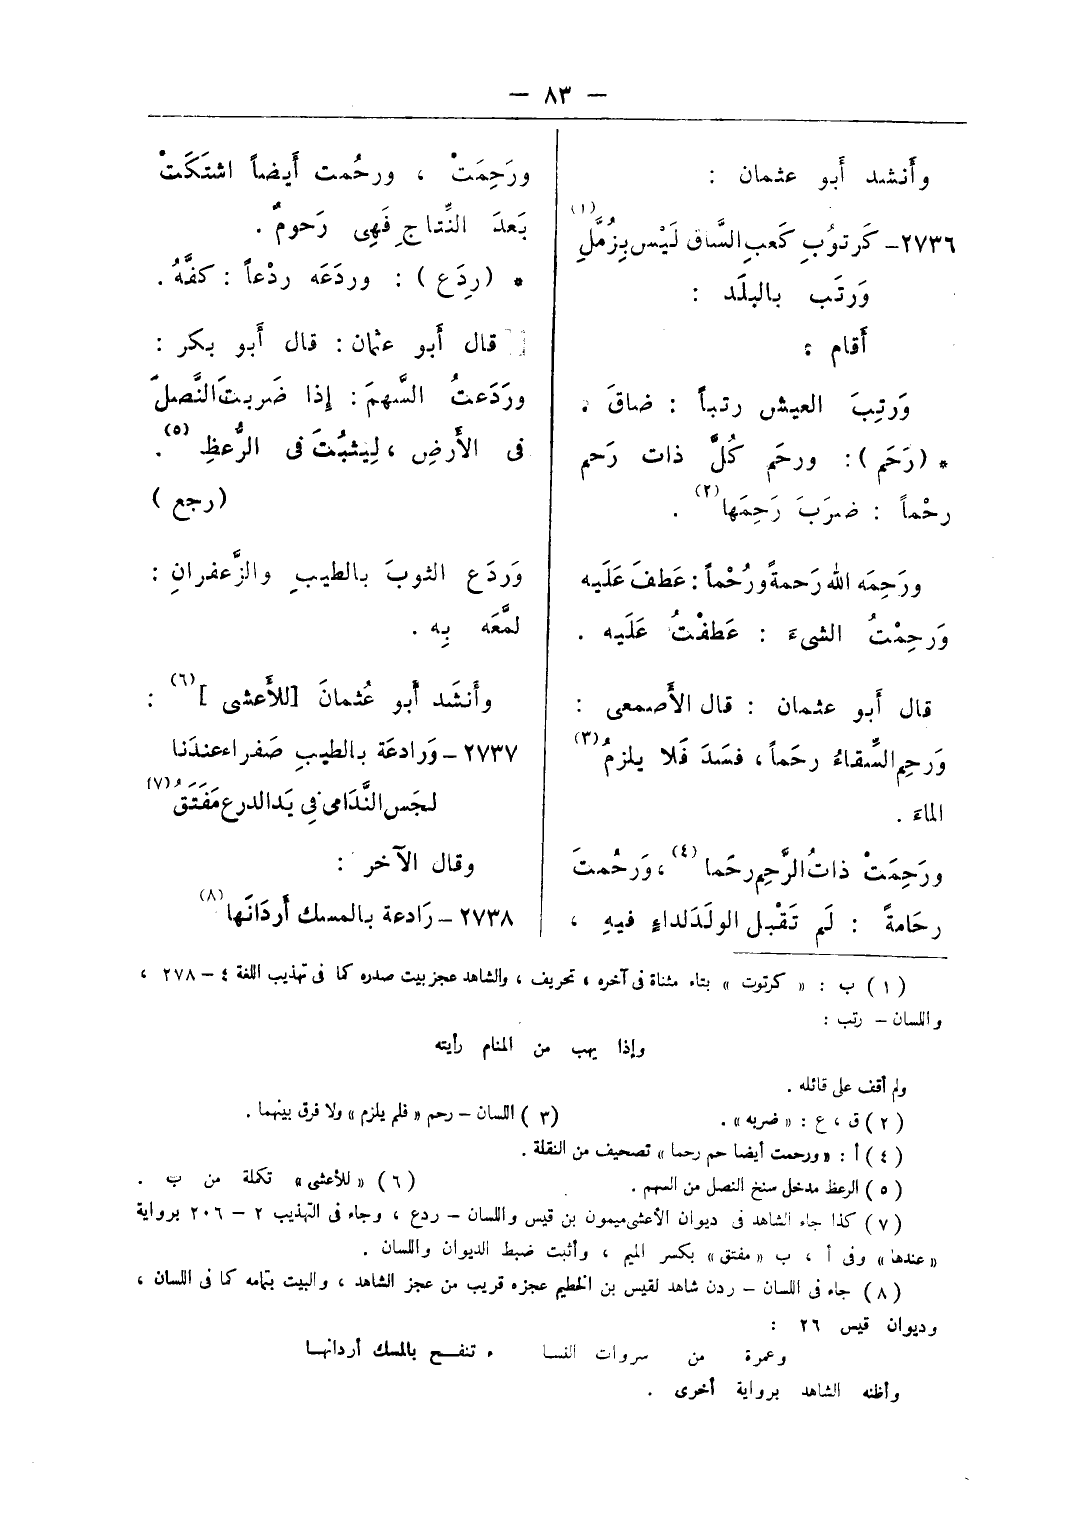 — ٨٣ —
وأَنشد أَبو عثمان :
٢٧٣٦ – كَرتوُبِ كَعبِ السَّاق لَيْس بِزُمَّلِ (١)
وَرتَب بالبلَد :
أَقام :
وَرتِبَ العيش رتباً : ضاقَ .
* (رَحَم) : ورحَم كُلَّ ذات رَحم
رحْماً : ضرَبَ رَحِمَها (٢) .
ورَحِمَه الله رَحمةً ورُحْماً : عَطفَ عَلَيه
وَرحِمْتُ الشىءَ : عَطفْتُ عَلَيه .
قال أَبو عثمان : قال الأَصمعى :
وَرحِم السِّقاءُ رحَماً ، فسَدَ فَلا يلزمُ (٣)
الماءَ .
ورَحِمَتْ ذاتُ الرَّحِم رحَما (٤) ، وَرحُمتَ
رحَامةً : لَم تَقْبل الولَدَ لداءٍ فيهِ ،
ورَحِمَتْ ، ورحُمت أَيضاً اشتَكَتْ
بَعدَ النِّتاجِ فَهِى رَحومٌ .
* (ردَع) : وردَعَه ردْعاً : كفَّهُ .
قال أَبو عثمان : قال أَبو بكر :
ورَدَعتُ السَّهمَ : إِذا ضَربتَ النَّصلَ
فى الأَرضِ ، لِيثبُتَ فى الرُّعظِ (٥) .
(رجع)
وَردَع الثوبَ بالطيبِ والزَّعفرانِ :
لمَّعَه بِه .
وأَنشَد أَبو عُثمانَ [ للأَعشى ] (٦) :
٢٧٣٧ – وَرادعَة بالطيبِ صَفراء عندَنا
لجَس النَّدَامى فِى يَد الدرع مَفتَقُ (٧)
وقال الآخر :
٢٧٣٨ – رَادعة بالمسك أَردَانَها (٨)
(١) ب : « كرتوت » بتاء مثناة فى آخره ، تحريف ، والشاهد عجز بيت صدره كما فى تهذيب اللغة ٤ – ٢٧٨ ،
واللسان – رتب :
وإذا يهب من المنام رأيته
ولم أقف على قائله .
(٢) ق ، ع : « ضربه » . (٣) اللسان – رحم « فلم يلزم » ولا فرق بينهما .
(٤) أ : « ورحمت أيضا حم رحما » تصحيف من النقلة .
(٥) الرعظ مدخل سنخ النصل من السهم . (٦) « للأعشى » تكملة من ب .
(٧) كذا جاء الشاهد فى ديوان الأعشى ميمون بن قيس واللسان – ردع ، وجاء فى التهذيب ٢ – ٢٠٦ برواية
« عندها » وفى أ ، ب « مفتق » بكسر الميم ، وأثبت ضبط الديوان واللسان .
(٨) جاء فى اللسان – ردن شاهد لقيس بن الخطيم عجزه قريب من عجز الشاهد ، والبيت بتمامه كما فى اللسان ،
وديوان قيس ٢٦ :
وعمرة من سروات النسا ء تنفح بالمسك أردانها
وأظنه الشاهد برواية أخرى .